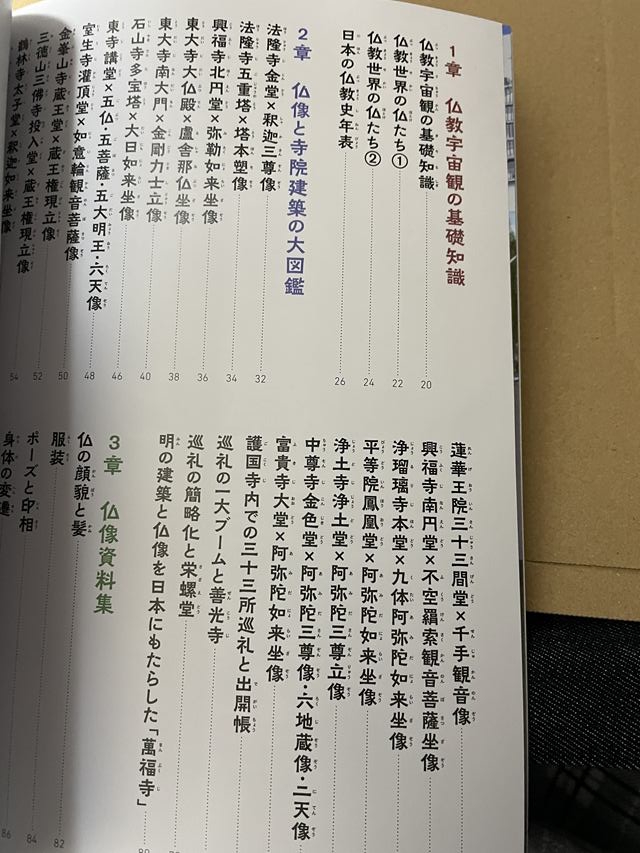 1章 仏教宇宙観の基礎知識
仏教宇宙観の基礎知識 20
仏教世界の仏たち① 22
仏教世界の仏たち② 24
日本の仏教史年表 26
2章 仏像と寺院建築の大図鑑
法隆寺金堂×釈迦三尊像 32
法隆寺五重塔×塔本塑像 34
興福寺北円堂×弥勒如来坐像 36
東大寺大仏殿×盧舎那仏坐像 38
東大寺南大門×金剛力士立像 40
石山寺多宝塔×大日如来坐像 46
東寺講堂×五仏・五菩薩・五大明王・六天像 48
室生寺灌頂堂×如意輪観音菩薩像 50
金峯山寺蔵王堂×蔵王権現立像 52
三徳山三佛寺投入堂×蔵王権現立像 54
鶴林寺太子堂×釈迦如来坐像
蓮華王院三十三間堂×千手観音像
興福寺南円堂×不空羂索観音菩薩坐像
浄瑠璃寺本堂×九体阿弥陀如来坐像
平等院鳳凰堂×阿弥陀如来坐像
浄土寺浄土堂×阿弥陀三尊立像
中尊寺金色堂×阿弥陀三尊像・六地蔵像・二天像
富貴寺大堂×阿弥陀如来坐像
護国寺内での三十三所巡礼と出開帳
巡礼の一大ブームと善光寺
巡礼の簡略化と栄螺堂
明の建築と仏像を日本にもたらした「萬福寺」
3章 仏像資料集
仏の顔貌と髪 82
服装 84
ポーズと印相 86
身体の変遷